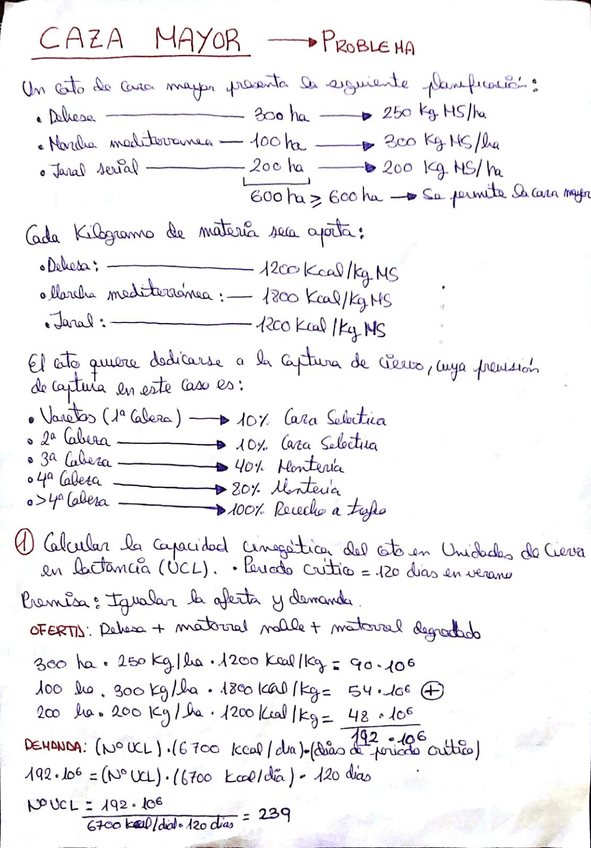 CAZA MAYOR → PROBLEMA
Un coto de caza mayor presenta la siguiente planificación:
• Dehesa — 300 ha → 250 Kg MS/ha
• Mancha mediterranea — 100 ha → 300 Kg MS/ha
• Jaral serial — 200 ha → 200 Kg MS/ha
600 ha ≥ 600 ha → Se permite la caza mayor
Cada Kilogramo de materia seca aporta:
• Dehesa: — 1200 Kcal/Kg MS
• Mancha mediterránea: — 1800 Kcal/Kg MS
• Jaral: — 1200 Kcal/Kg MS
El coto quiere dedicarse a la captura de ciervo, cuya previsión
de captura en este caso es:
• Varetos (1ª Cabeza) → 10% Caza Selectiva
• 2ª Cabeza → 10% Caza Selectiva
• 3ª Cabeza → 40% Montería
• 4ª Cabeza → 80% Montería
• >4ª Cabeza → 100% Rececho a trofeo
① Calcular la capacidad cinegética del coto en Unidades de Cierva
en lactancia (UCL). • Periodo crítico = 120 dias en verano
Premisa: Igualar la oferta y demanda.
OFERTA: Dehesa + matorral noble + matorral degradado
300 ha • 250 Kg/ha • 1200 Kcal/Kg = 90 • 10⁶
100 ha • 300 Kg/ha • 1800 Kcal/Kg = 54 • 10⁶ ⊕
200 ha • 200 Kg/ha • 1200 Kcal/Kg = 48 • 10⁶
192 • 10⁶
DEMANDA: (Nº UCL) • (6700 Kcal/dia) • (dias de periodo crítico)
192 • 10⁶ = (Nº UCL) • (6700 Kcal/día) • 120 dias
Nº UCL = 192 • 10⁶ / 6700 Kcal/dia • 120 dias = 239